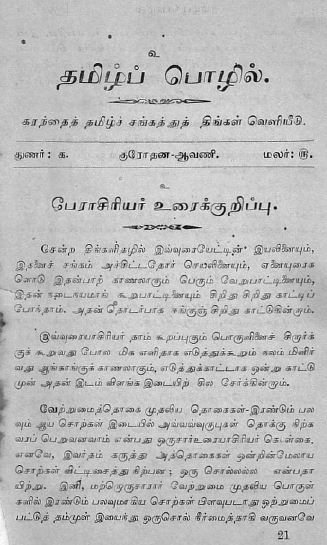 உ
தமிழ்ப் பொழில்.
கரந்தைத் தமிழ்ச் சங்கத்துத் திங்கள் வெளியீடு.
துணர்: க. குரோதன-ஆவணி. மலர்: ௫.
உ
பேராசிரியர் உரைக்குறிப்பு.
சென்ற திங்களிதழில் இவ்வுரையேட்டின் இயலினையும்,
இதனைச் சங்கம் அச்சிட்டதோர் செயலினையும், ஏனையுரைக
ளொடு இதன்பாற் காணலாகும் பெரும் வேறுபாட்டினையும்,
இதன் நடைநயமாங் கூறுபாட்டினையும் சிறிது சிறிது காட்டிப்
போந்தாம். அதன் தொடர்பாக ஈங்குஞ் சிறிது காட்டுகின்றாம்.
இவ்வுரையாசிரியர் தாம் கூறப்புகும் பொருளினைச் சிறார்க்
குக் கூறுவது போல மிக எளிதாக எடுத்துக்கூறும் நலம் மிளிர்
வது ஆங்காங்குக் காணலாகும், எடுத்துக்காட்டாக ஒன்று காட்டு
முன் அதன் இடம் விளங்க இடையிற் சில சேர்க்கின்றாம்.
வேற்றுமைத்தொகை முதலிய தொகைகள்-இரண்டும் பல
வும் ஆய சொற்கள் இடையில் அவ்வவ்வுருபுகள் தொக்கு நிற்க
வரப் பெறுவனவாம் என்பது ஒருசார்உரையாசிரியர் கொள்கை.
எனவே, இவர்தம் கருத்து அத்தொகைகள் ஒன்றின்மேலாய
சொற்கள் விட்டிசைத்து நிற்பன; ஒரு சொல்லல்ல என்பதா
யிற்று. இனி, மற்றொருசாரார் வேற்றுமை முதலிய பொருள்
களில் இரண்டும் பலவுமாகிய சொற்கள் பிளவுபடாது ஒற்றுமைப்
பட்டுத் தம்முள் இயைந்து ஒருசொல் நீர்மைத்தாகி வருவனவே
21